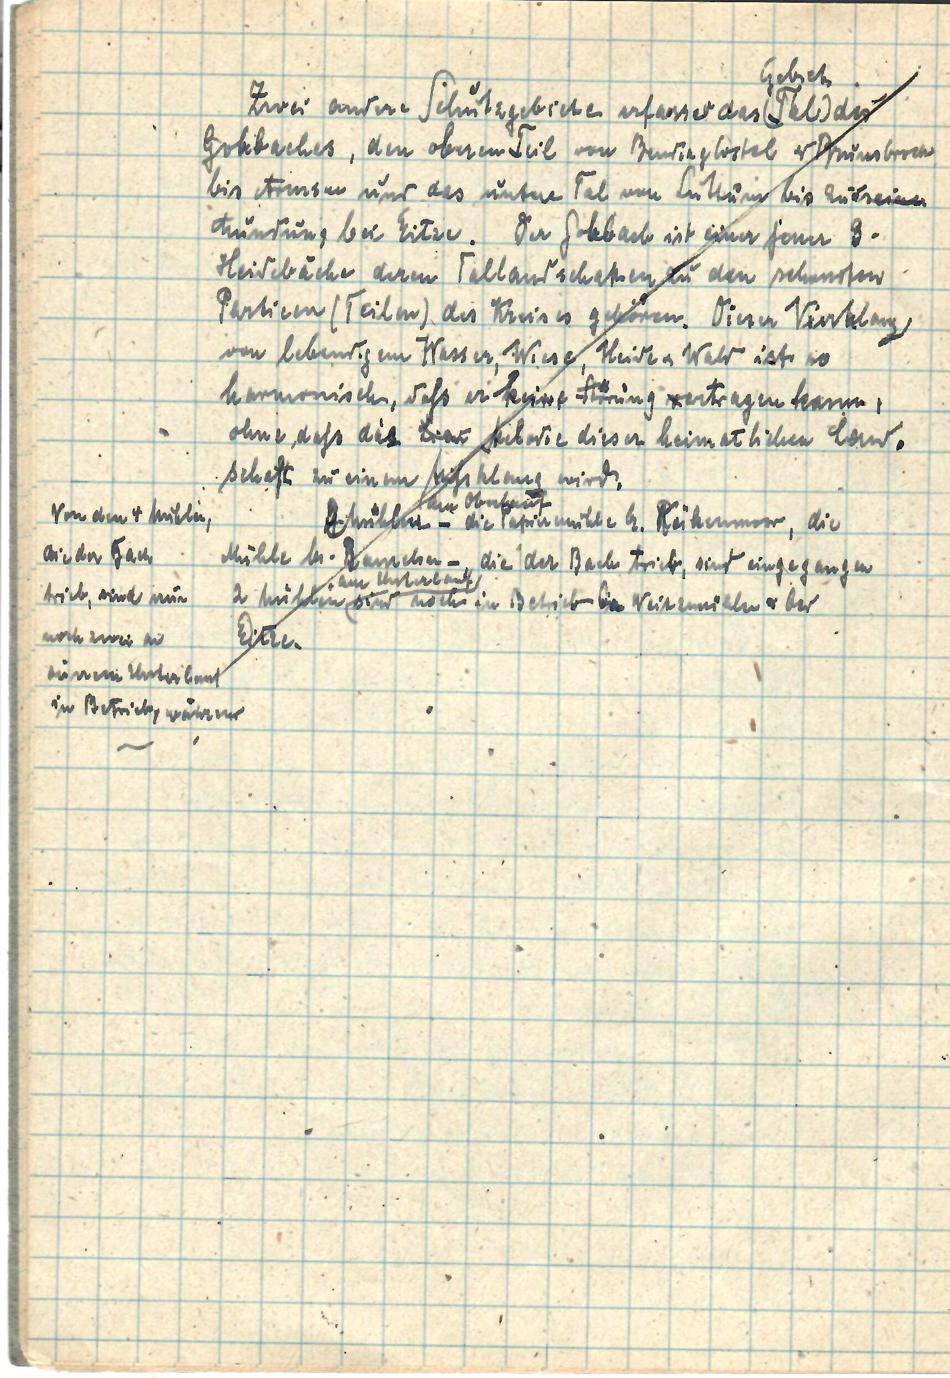 Gebiet
Zwei andere Schutzgebiete erfassen das (Tal) des
Gohbaches, den oberen Teil von Bendingbostel u Brunsbrock
bis Armsen und das untere Tal von Luttum bis zu seiner
Mündung bei Eitze. Der Gohbach ist einer jener
Heidebäche deren Tallandschaften zu den schönsten
Partieen (Teilen) des Kreises gehören. Dieser Vierklang
von lebendigem Wasser, Wiese, Heide u Wald ist so
harmonisch, daß er keine Störung vertragen kann,
ohne daß das dieser heimatlichen Land-
schaft zu einem Mißklang wird.
am Oberlauf
2 Mühlen – die Papiermühle b. Kükenmoor, die
Mühle in – die der Bach trieb, sind eingegangen
am Unterlauf
2 Mühlen sind noch in Betrieb in Weitzmühlen u bei
Eitze.
Von den 4 Mühlen,
die der Bach
trieb, sind nur
noch zwei an
seinem Unterlauf
in Betrieb, während